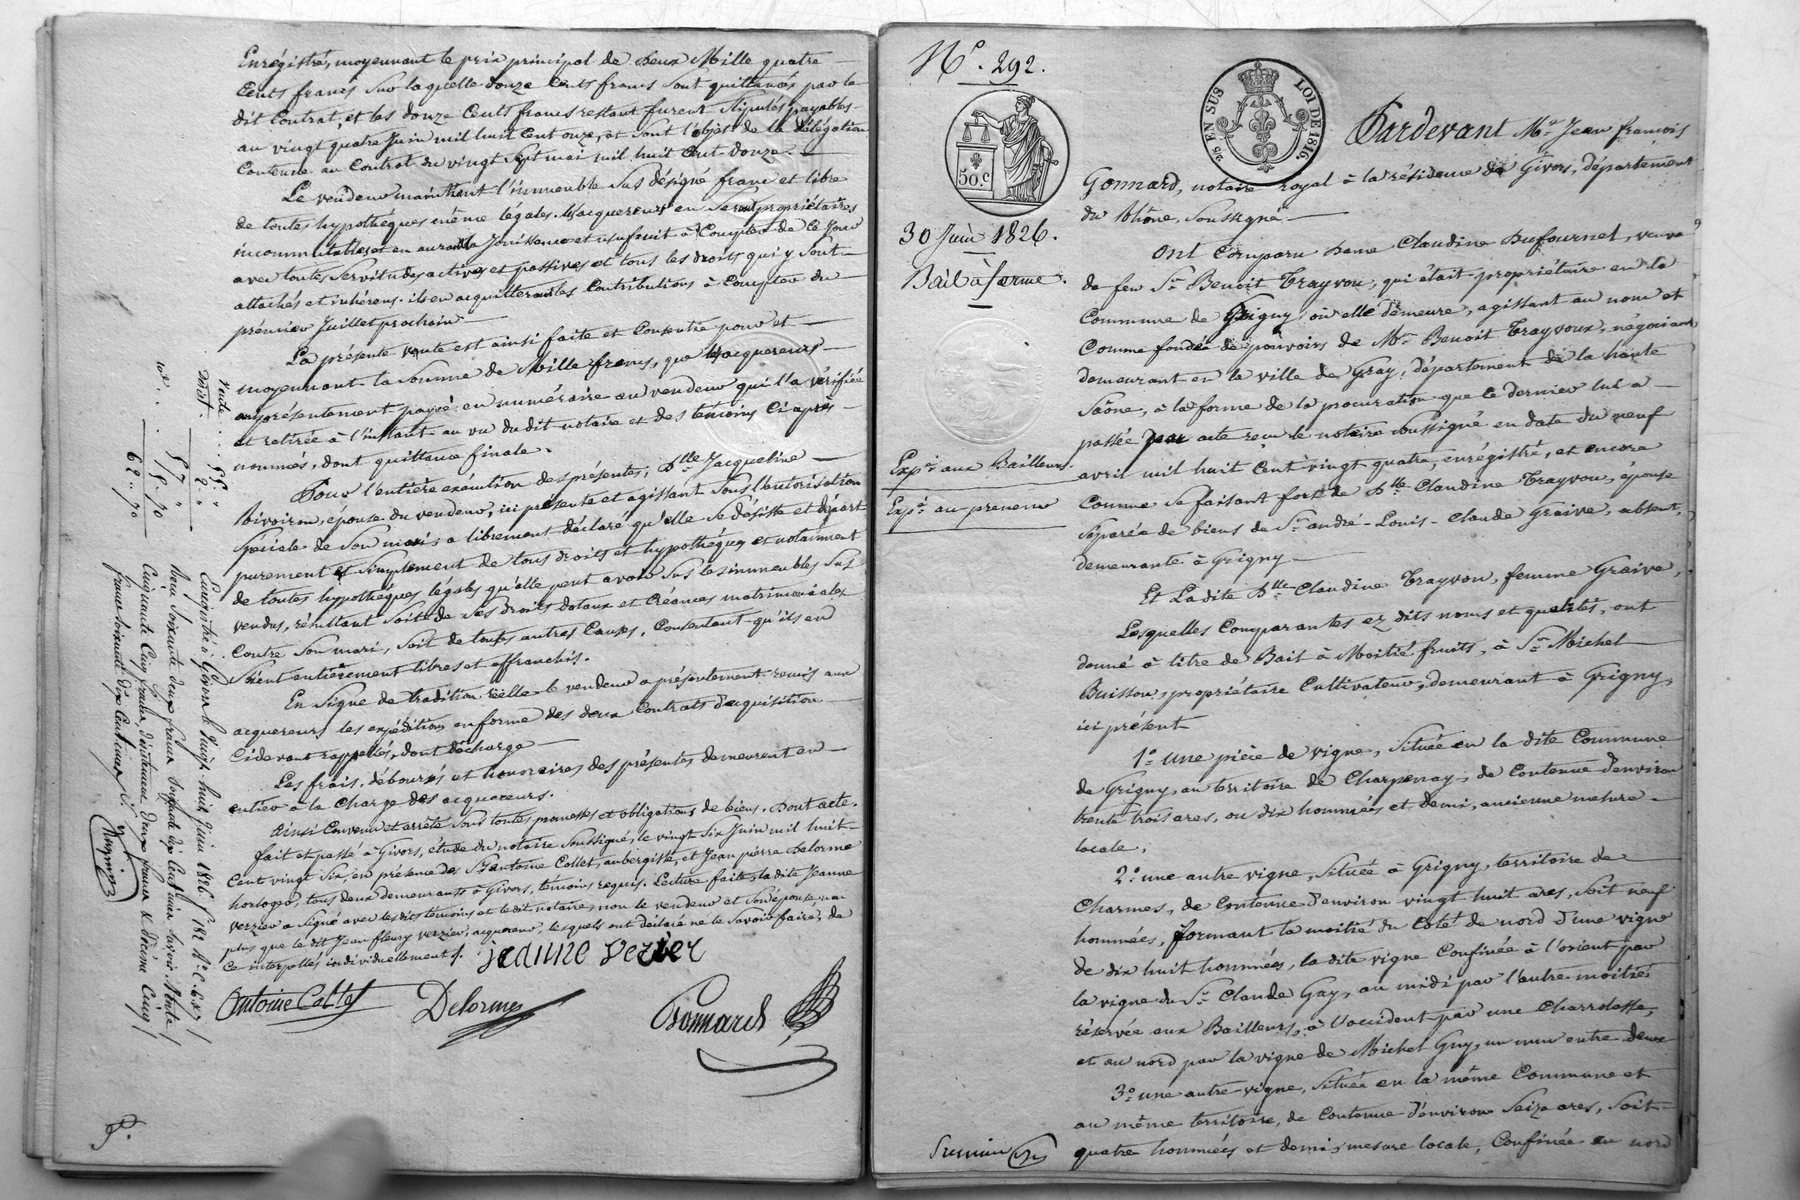 Enrégistré, moyennant le prix principal de Deux Mille quatre
Cents francs sur laquelle douze Cents francs sont quittancés par le
dit Contrat, et les douze Cents francs restant furent stipulés payables
au vingt quatre Juin mil huit Cent onze, et sont l'objet de la délégation
Contenue au Contrat du vingt Sept mai mil huit Cent douze.
Le vendeur maintient l'immeuble Sus désigné franc et libre
de toutes hypothèques même légales. Les acquereurs en seront propriétaires
incommutables et en auront la Jouissance et usufruit à Compter de ce Jour
avec toutes Servitudes actives et passives et tous les droits qui y Sont
attachés et inhérens. ils en acquitteront les Contributions à Compter du
prémier Juillet prochain
La présente vente est ainsi faite et Consentie pour et
moyennant la Somme de Mille francs, que les acquereurs
ont présentement payée en numéraire au vendeur qui l'a vérifiée
et retirée à l'instant au vu du dit notaire et des témoins Ci après
nommés, dont quittance finale.
Pour l'entière exécution des présentes, D.lle Jacqueline
Vivoiron, épouse du vendeur, ici présente et agissant sous l'autorisation
Spéciale de Son mari, a librement déclaré qu'elle se désiste et départ
purement et Simplement de tous droits et hypothèques et notamment
de toutes hypothèques légales qu'elle peut avoir Sur les immeubles Sus
vendus, résultant Soit de Ses droits dotaux et Créances matrimoniales
Contre Son mari, Soit de toutes autres Causes, Consentant qu'ils en
Soient entièrement libres et affranchis.
En Signe de tradition réelle le vendeur a présentement remis aux
acquereurs les expéditions en forme des deux Contrats d'acquisition
Cidevant rappellés, dont décharge
Les frais, débours et honoraires des présentes demeurent en
entier à la Charge des acquereurs.
Ainsi Convenu et arrêté sous toutes promesses et obligations de biens. Dont acte.
fait et passé à Givors, étude du notaire Soussigné, le vingt Six Juin mil huit
Cent vingt Six, en présence des Srs. antoine Collet, aubergiste, et Jean pierre Delorme
horloger, tous deux demeurants à Givors, témoins requis. Lecture faite, la dite Jeanne
verzier a Signé avec les dits témoins et le dit notaire, non le vendeur et Son épouse, non
plus que le dit Jean fleury verzier, acquereur, lesquels ont déclaré ne le Savoir faire, de
Ce interpellés individuellement.
jeanne verzier
Antoine Collet
Delorme
Gonnard
vente . . 55. "
Désist. . 2. "
57 "
10e. . . 5. 70
62. 70
Enregistré à Givors le vingt huit Juin 1826. f° 182
Reçu Soixante deux francs Soixante dix Centimes Savoir. Vente
Cinquante Cinq francs, désistement deux francs & décime Cinq
francs Soixante dix Centimes
N.o 292.
50.c
25 EN SUS
LOI DE 1816.
30 Juin 1826.
Bail à ferme.
Exp.on aux Bailleurs.
Exp.on au preneur
Pardevant M.e Jean françois
Gonnard, notaire royal à la résidence de Givors, département
du Rhône, soussigné
Ont Comparu Dame Claudine Dufournel, veuve
de feu S.r Benoit Trayvou, qui était propriétaire en la
Commune de Grigny, où elle demeure, agissant au nom et
Comme fondée de pouvoirs de M.r Benoit Trayvoux, négociant
demeurant en la ville de Gray, département de la haute
Saône, à la forme de la procuration que ce dernier lui a
passée par acte reçu le notaire Soussigné en date du neuf
avril mil huit Cent vingt quatre, enrégistré, et encore
Comme se faisant fort de D.lle Claudine Trayvou, épouse
Séparée de biens de S.r andré-Louis-Claude Graive, absent,
demeurante à Grigny
Et La dite D.lle Claudine Trayvou, femme Graive,
Lesquelles Comparantes ez dits noms et qualités, ont
donné à titre de Bail à Moitié fruits, à S.r Michel
Buisson, propriétaire Cultivateur, demeurant à Grigny,
ici présent
1.o une pièce de vigne, Située en la dite Commune
de Grigny, au territoire de Charpenay, de Contenue d'environ
trente trois ares, ou dix hommées et demi, ancienne mesure
locale,
2.o une autre vigne, Située à Grigny, territoire de
Charmes, de Contenue d'environ vingt huit ares, soit neuf
hommées, formant la moitié du Coté de nord d'une vigne
de dix huit hommées, la dite vigne Confinée à l'orient par
la vigne du S.r Claude Gay, au midi par l'autre moitié
réservée aux Bailleurs, à l'occident par une Charrolasse,
et au nord par la vigne de Michel Guy, un mur entre deux
3.o une autre vigne, Située en la même Commune et
au même territoire, de Contenue d'environ Seize ares, soit
quatre hommées et demi, mesure locale, Confinée au nord